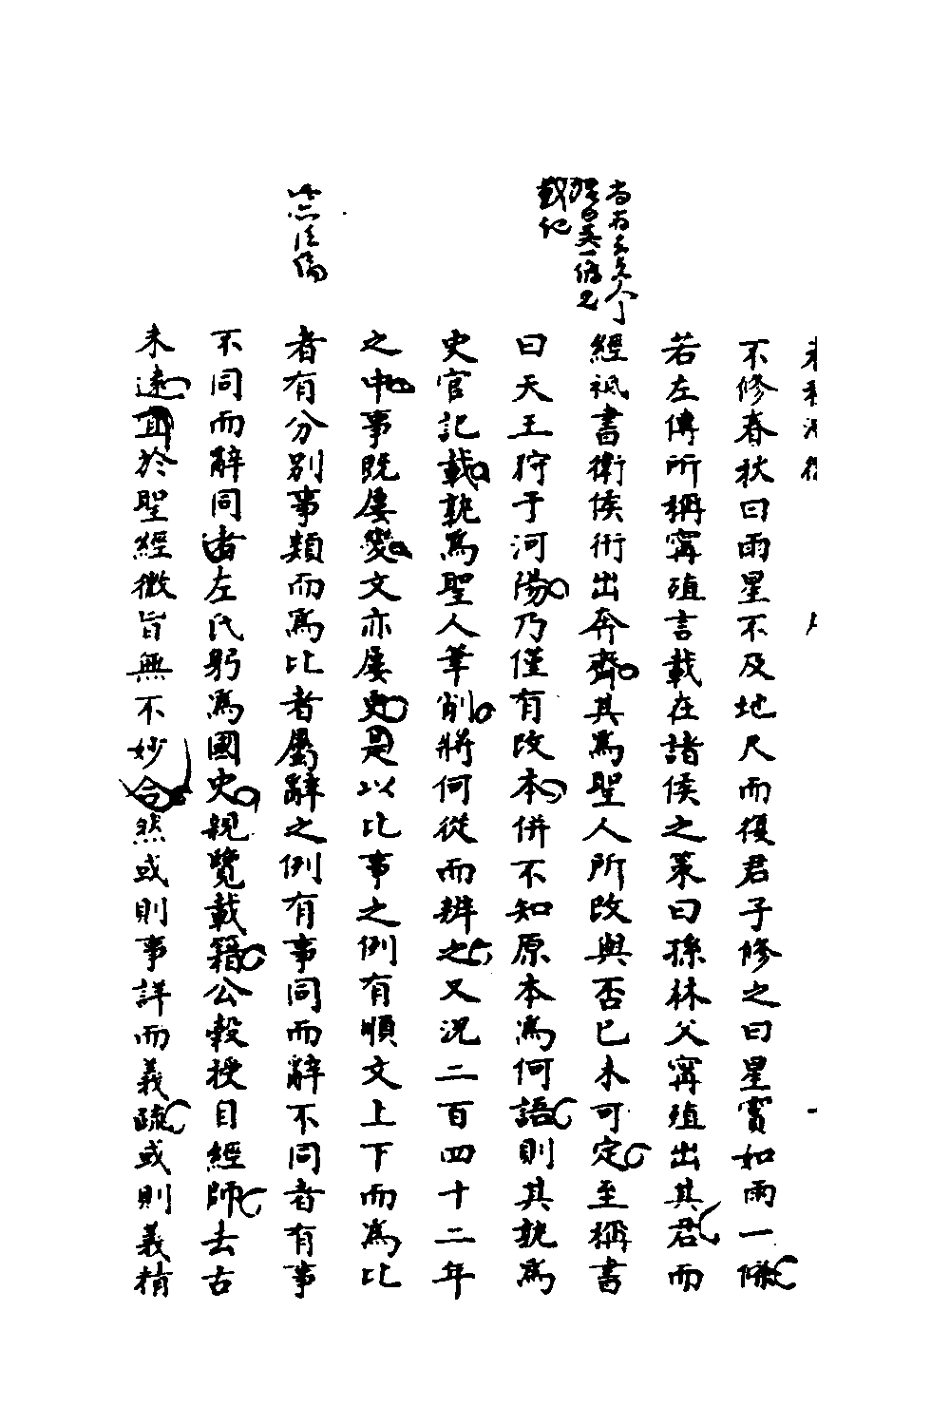 不修春秋曰雨星不及地尺而復君子修之曰星霣如雨一條
若左傳所稱甯殖言載在諸侯之策曰孫林父甯殖出其君而
經祗書衛侯衎出奔齊其為聖人所改與否已未可定至稱書
曰天王狩于河陽乃僅有改本併不知原本為何語則其孰為
史官記載孰為聖人筆削將何從而辨之又況二百四十二年
之中事既屢變文亦屢更是以比事之例有順文上下而為比
者有分別事類而為比者屬辭之例有事同而辭不同者有事
不同而辭同者左氏躬為國史親覽載籍公穀授自經師去古
未遠宜於聖經微旨無不妙合然或則事詳而義疏或則義精